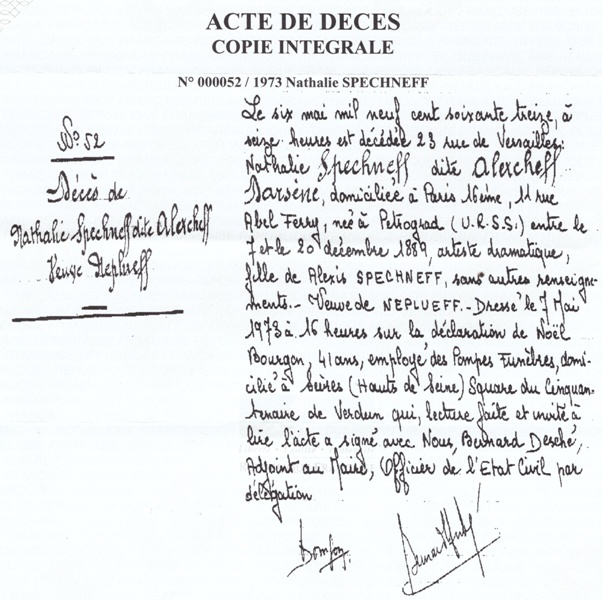 ACTE DE DECES
COPIE INTEGRALE
N° 000052 / 1973 Nathalie SPECHNEFF
N° 52
Décès de
Nathalie Spechneff dite Alexcheff
Veuve Neplueff
Le six mai mil neuf cent soixante treize, à
seize heures est décédée 23 rue de Versailles:
Nathalie Spechneff dite Alexcheff
Darsène, domiciliée à Paris 16ème, 11 rue
Abel Ferry, née à Petrograd (U.R.S.S.) entre le
7 et le 20 décembre 1889, artiste dramatique,
fille de Alexis SPECHNEFF, sans autres renseigne-
ments.- Veuve de NEPLUEFF.- Dressé le 7 Mai
1973 à 16 heures sur la déclaration de Noël
Bourgon, 41 ans, employé des Pompes Funèbres, domi-
cilié à Sèvres (Hauts de Seine) Square du Cinquan-
tenaire de Verdun qui, lecture faîte et invité à
lire l'acte a signé avec Nous, Bernard Desché,
Adjoint au Maire, Officier de l'Etat Civil par
délégation